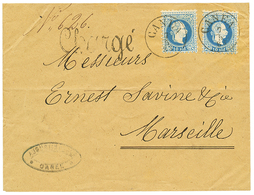 No 626.
Chargé
CANEA
CANEA
Messieurs
Ernest Savine & Cie
Marseille
CANEE